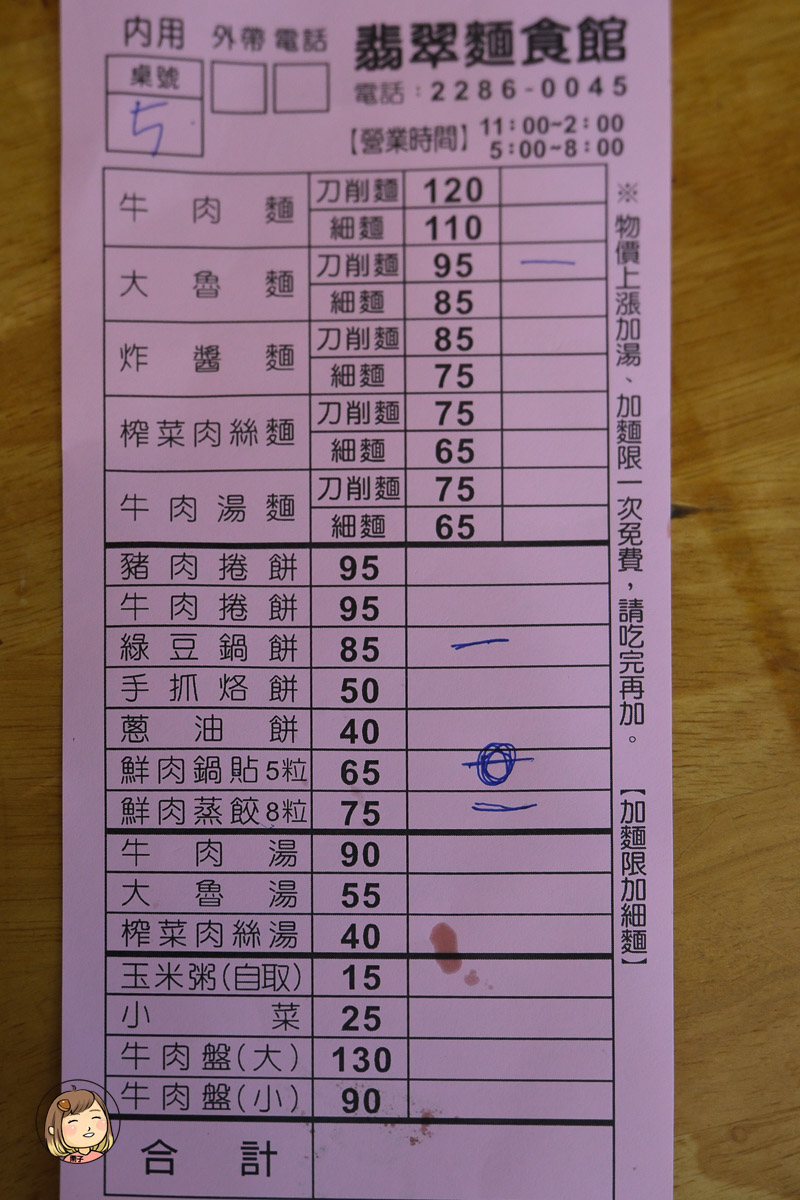 內用 外帶 電話 翡翠麵食館
桌號
5
電話：2286-0045
【營業時間】11：00~2：00
5：00~8：00
牛肉麵 刀削麵 120
細麵 110
大魯麵 刀削麵 95 一
細麵 85
炸醬麵 刀削麵 85
細麵 75
榨菜肉絲麵 刀削麵 75
細麵 65
牛肉湯麵 刀削麵 75
細麵 65
豬肉捲餅 95
牛肉捲餅 95
綠豆鍋餅 85 一
手抓烙餅 50
蔥油餅 40
鮮肉鍋貼5粒 65
鮮肉蒸餃8粒 75 一
牛肉湯 90
大魯湯 55
榨菜肉絲湯 40
玉米粥(自取) 15
小菜 25
牛肉盤(大) 130
牛肉盤(小) 90
合計
※物價上漲加湯、加麵限一次免費，請吃完再加。【加麵限加細麵】